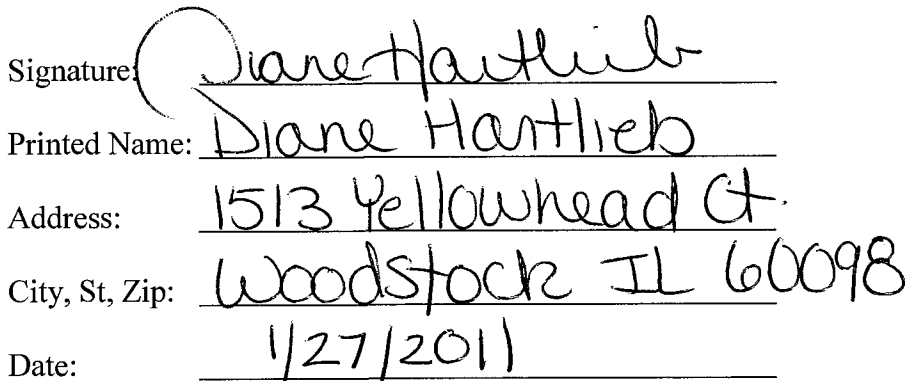 Signature: Diane Hartlieb
Printed Name: Diane Hartlieb
Address: 1513 Yellowhead Ct.
City, St, Zip: Woodstock IL 60098
Date: 1/27/2011